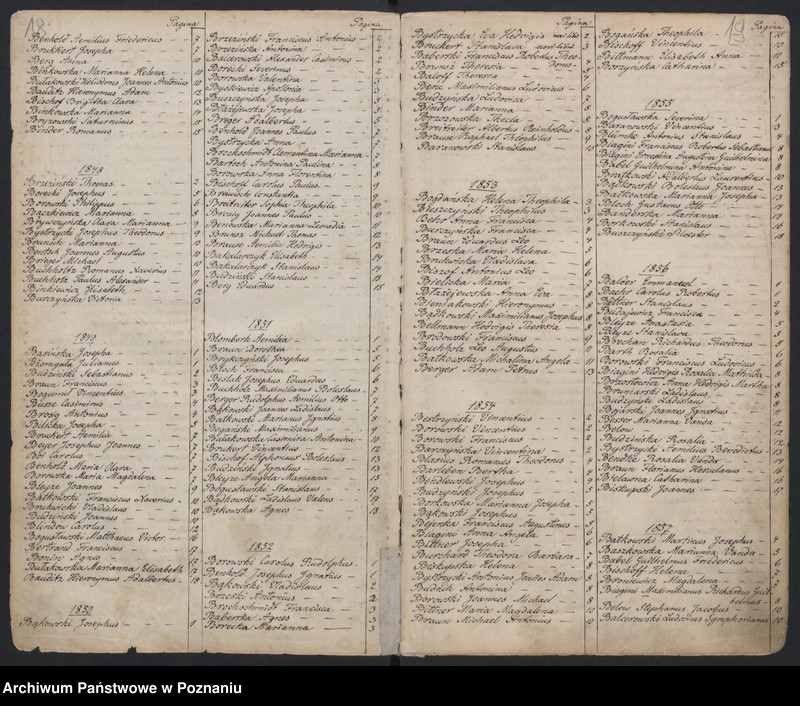 18.
Pagina
Benhold Aemilius Fridericus - - 7
Brukhert Josepha - - 7
Berg Anna
Binkowska Marianna Helena - 10
Bulakowski Heliodorus Joannes Antonius 10
Bauditz Hieronymus Adam - 12
Bischof Brigitta Clara
Bińkowska Marianna
Bryzowski Saturninus
Binder Romanus
1848
Bruziński Thomas - 2
Borecki Josephus
Borowski Philippus
Bączkiewicz Marianna - 8
Brywczyńska Clara Marianna 9
Bystrzycki Josephus Theodorus - 9
Brunsch Marianna
Bentsch Joannes Augustus - 10
Brieger Michael
Buchholtz Romanus Xaverius
Buchholtz Paulus Alexander - 11
Binkiewicz Elisabeth - 12
Burczyńska Victoria - 13
1849
Basińska Josepha - 1
Dżomgala Julianus
Budziński Sebastianus - 2
Braun Franciscus - 3
Bogumił Vincentius
Busse Casimirus
Brosig Antonius - 4
Bilicka Josepha - 5
Bruckert Aemilia
Beyer Josephus Joannes - 7
Boi Carolus
Benhold Maria Clara - 7
Borowska Maria Magdalena - 7
Bleyze Joannes - 9
Bątkowski Franciscus Xaverius
Brukwicki Vladislaus - 10
Budziński Joannes - 10
Blindow Carolus - 12
Bogusławski Matthaeus Victor - 16
Bertrand Franciscus - 17
Bonin Agnes
Bułakowska Marianna Elisabeth 17
Bauditz Hieronymus Adalbertus - 18
1850
Bąkowski Josephus - 1
Pagina
Brzeziński Franciscus Antonius - 2
Brzezińska Antonina - 2
Balcerowski Alexander Casimirus - 2
Borecki Severinus
Borowska Valentina
Byśkiewicz Apolonia
Buszczyńska Josepha - 5
Błażejewska Josepha - 5
Breger Adalbertus
Benhold Joannes Paulus
Bystrzycka Anna - 7
Brockschmidt Clementina Marianna - 7
Bartsch Antonina Paulina - 8
Borowska Anna Florentina
Bischoff Carolus Paulus - 9
Brewisch Constantia - 9
Breitreiter Sophia Theophila - 10
Brosig Joannes Paulus - 10
Benowska Marianna Leocadia - 11
Brunsz Michael Thomas - 12
Brause Aemilia Hedvigis - 13
Bakalarczyk Elisabeth - 14
Bakalarczyk Stanislaus - 14
Budziński Stanislaus - 15
Berg Eduardus - 15
1851
Blomberk Aemilia - 1
Braun Dorothea - 5
Brykczyński Josephus - 5
Bloch Francisca
Bielsk Josephus Eduardus
Buchholz Maximilianus Boleslaus
Berger Rudolphus Aemilius Otto - 7
Bąkowski Joannes Ladislaus - 7
Batkowski Marianus Ignatius - 8
Bogański Maximilianus - 9
Bułakowska Casimira Antonina 10
Brukert Vincentius - 12
Bischoff Alphonsus Boleslaus - 13
Budziński Ignatius - 13
Bleyze Angela Marianna - 15
Bogusławski Stanislaus - 17
Bąkowski Ladislaus Valens - 19
Bąkowska Agnes - 18
1852
Borowski Carolus Rudolphus - 1
Benhold Josephus Ignatius - 1
Bąkowski Vladislaus - 2
Brzeski Antonius - 2
Brochschmidt Francisca - 3
Baberska Agnes - 3
Borecka Marianna - 3
Pagina
Bystrzycka Eva Hedvigis 2
Bruckert Stanislava 3
Baberski Franciscus Robertus Theodorus
Brunsz Theresia
Baloff Theresia
Benz Maximilianus Ludovicus - 6
Budzyńska Ludovica - 7
Binder Marianna - 8
Brzozowska Thecla - 8
Breitreiter Albertus Reinholdus - 8
Brause Raphael Theophilus - 9
Baranowski Stanislaus - 10
1853
Bogdańska Helena Theophila - 3
Błuszczyński Theophilus - 3
Behr Anna Francisca
Burczyńska Francisca - 4
Braun Eduardus Leo - 4
Brzeska Maria Helena - 5
Brukwicka Vladislava - 6
Biszof Antonius Leo - 6
Bielicka Maria - 7
Błażejewska Anna Eva - 8
Bieniakowski Hieronymus - 8
Bąkowski Maximilianus Josephus 8
Bellmann Hedvigis Theresia - 8
Brodowski Franciscus - 9
Buchholz Leo Augustus - 11
Batkowska Michalina Angela - 11
Berger Adam Petrus - 13
1854
Bestrzyński Vincentius - 2
Borowski Vincentius - 2
Borowski Franciscus - 2
Barczyńska Vincentina - 2
Blasius Romanus Theodorus
Bartleben Bertha - 4
Bendlewski Josephus - 4
Budzyński Josephus
Borkowska Marianna Josepha - 5
Bąkowski Josephus - 5
Bejenka Franciscus Augustinus - 5
Biagini Anna Angela - 6
Bittner Josepha - 6
Burchard Theodora Barbara - 7
Biskupska Helena - 8
Bystrzycki Antonius Joannes Adam 8
Budnik Antonina - 8
Borowski Joannes Michael - 8
Bittner Maria Magdalena - 10
Braun Michael Antonius - 10
19
Pagina
Bogańska Theophila - 10
Bischoff Vincentius - 10
Bittmann Elisabeth Anna - 11
Borzyńska Catharina - 15
1855
Bogusławska Severina - 1
Baranowski Vincentius - 3
Blümke Antonius Stanislaus
Biagini Franciscus Robertus Sebastianus 8
Biagini Ernestina Augustina Guilhelmina 8
Babel Guilhelmina Antonina - 8
Brątkowski Adalbertus Laurentius - 10
Bąkowski Boleslaus Joannes - 13
Batkowska Marianna Josepha - 13
Bloch Gustavus Otto - 14
Banderska Marianna - 14
Borkowski Stanislaus - 16
Buszczyński Silvester - 18
1856
Balder Emmanuel - 1
Bachr Carolus Robertus - 1
Bittner Stanislaus - 2
Budajewicz Francisca - 4
Bleyze Anastasia - 5
Bleyze Stanislava - 5
Brechan Richardus Theodorus - 5
Barth Rosalia - 6
Borowski Franciscus Ludovicus - 6
Biagini Hedvigis Rosalia Mathilda - 6
Brzostowicz Anna Hedvigis Martha 8
Bruniarski Ladislaus - 8
Budzyński Ladislaus - 8
Bojarski Joannes Ignatius - 11
Besser Marianna Vanda - 12
Below - 12
Budzińska Rosalia - 12
Bystrzycki Aemilius Benedictus - 13
Benetke Rosalia Vanda - 14
Braun Florianus Herculanus - 16
Bielawna Catharina - 16
Biskupski Joannes - 17
1857
Batkowski Martinus Josephus - 4
Baszkowska Marianna Vanda - 5
Babel Guilhelmus Fridericus - 6
Bischoff Helena - 7
Broniewicz Magdalena - 7
Biagini Maximilianus Richardus Guilhelmus - 8
Below Stephanus Jacobus - 10
Balcerowski Ludovicus Symphorianus 10
Archiwum Państwowe w Poznaniu